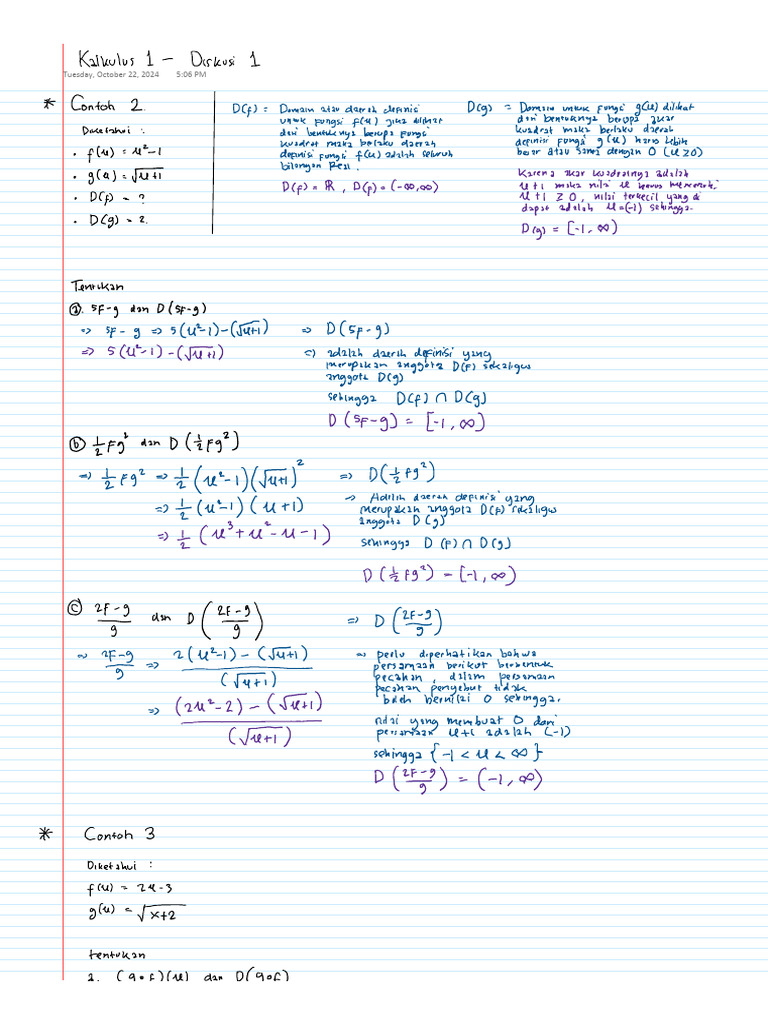 Kalkulus 1 – Diskusi 1
Tuesday, October 22, 2024 5:06 PM
* Contoh 2.
Diketahui :
• f(x) = x²-1
• g(x) = √x+1
• D(f) = ?
• D(g) = ?
D(f) = Domain atau daerah definisi
untuk fungsi f(x) jika dilihat
dari bentuknya berupa fungsi
kuadrat maka berlaku daerah
definisi fungsi f(x) adalah seluruh
bilangan Real.
D(f) = ℝ , D(f) = (-∞,∞)
D(g) = Domain untuk fungsi g(x) dilihat
dari bentuknya berupa akar
kuadrat maka berlaku daerah
definisi fungsi g(x) harus lebih
besar atau sama dengan 0 (x ≥ 0)
Karena akar kuadratnya adalah
x+1 maka nilai x harus memenuhi
x+1 ≥ 0, nilai terkecil yang di
dapat adalah x=(-1) sehingga.
D(g) = [-1, ∞)
Tentukan
a. 5f-g dan D(5f-g)
=> 5f-g => 5(x²-1)-(√x+1)
=> 5(x²-1)-(√x+1)
=> D(5f-g)
=> adalah daerah definisi yang
merupakan anggota D(f) sekaligus
anggota D(g)
sehingga D(f) ∩ D(g)
D(5f-g) = [-1, ∞)
b ½fg² dan D(½fg²)
=> ½fg² => ½(x²-1)(√x+1)²
=> ½(x²-1)(x+1)
=> ½(x³+x²-x-1)
=> D(½fg²)
=> Adalah daerah definisi yang
merupakan anggota D(f) sekaligus
anggota D(g)
sehingga D(f) ∩ D(g)
D(½fg²) = [-1, ∞)
c 2f-g/g dan D(2f-g/g)
=> 2f-g/g => 2(x²-1)-(√x+1)/(√x+1)
=> (2x²-2)-(√x+1)/(√x+1)
=> D(2f-g/g)
=> perlu diperhatikan bahwa
persamaan berikut berbentuk
pecahan, dalam persamaan
pecahan penyebut tidak
boleh bernilai 0 sehingga.
nilai yang membuat 0 dari
persamaan x+1 adalah (-1)
sehingga {-1 < x < ∞}
D(2f-g/g) = (-1, ∞)
* Contoh 3
Diketahui :
f(x) = 2x-3
g(x) = √x+2
tentukan
a. (g∘f)(x) dan D(g∘f)